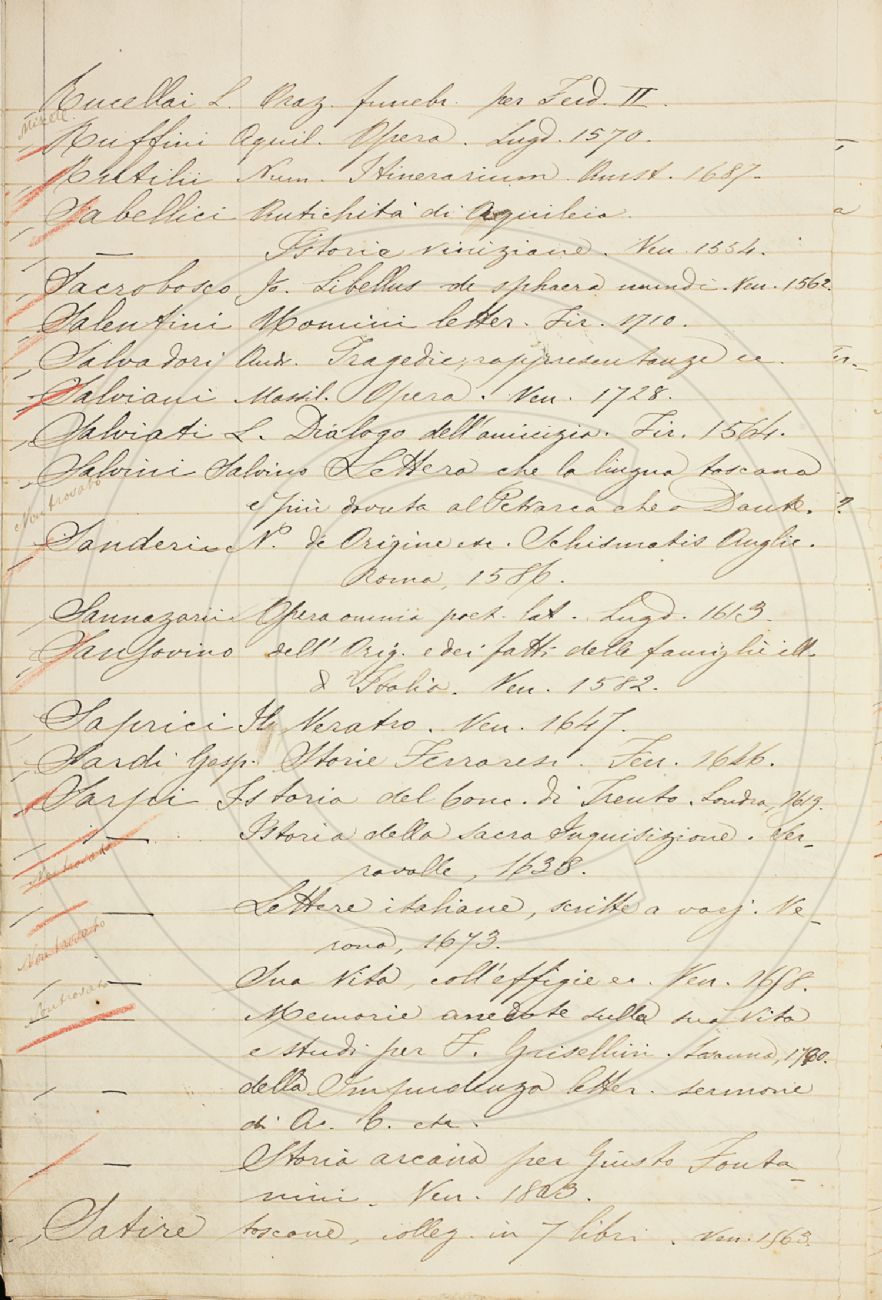 Rucellai L. Oraz. funebr. per Ferd. II.
Ruffini Aquil. Opera. Lugd. 1570.
Rutilii Num. Itinerarium Amst. 1687.
Sabellici Antichità di Aquileia. a
— Istoria viniziana. Ven. 1554.
Sacrobosco Jo. Libellus de sphaera mundi. Ven. 1562.
Salentini Uomini letter. Fir. 1710.
Salvadori And. Tragedie, rappresentanze ec.
Salviani Massil. Opera. Ven. 1728.
Salviati L. Dialogo dell'amicizia. Fir. 1564.
Salvini Salvino Lettera che la lingua toscana
Nontrovato
è più dovuta al Petrarca che a Dante. ?
Sanderi N. de Origine etc. Schismatis Anglic.
Roma, 1586.
Sannazarii Opera omnia poet. lat. Lugd. 1613
Sansovino dell' Orig. e dei fatti delle famiglie ill.
d'Italia. Ven. 1582.
Saprici Il Veratro. Ven. 1647.
Sardi Gasp. Storie Ferraresi. Fer. 1646.
Sarpi Istoria del Conc. di Trento. Londra, 1619.
— Istoria della sacra Inquisizione. Ser-
Nontrovato
ravalle, 1638.
— Lettere italiane, scritte a varj. Ve-
Nontrovato
rona, 1673.
— Sua Vita, coll'effigie ec. Ven. 1658.
Nontrovato
— Memorie anedote sulla sua vita
e studi per F. Grisellini. Losanna, 1760.
— della Impudenza letter. sermone
di A. C. etc.
— Storia arcana per Giusto Fonta-
nini. Ven. 1803.
Satire toscane, colleg. in 7 libri. Ven. 1563.